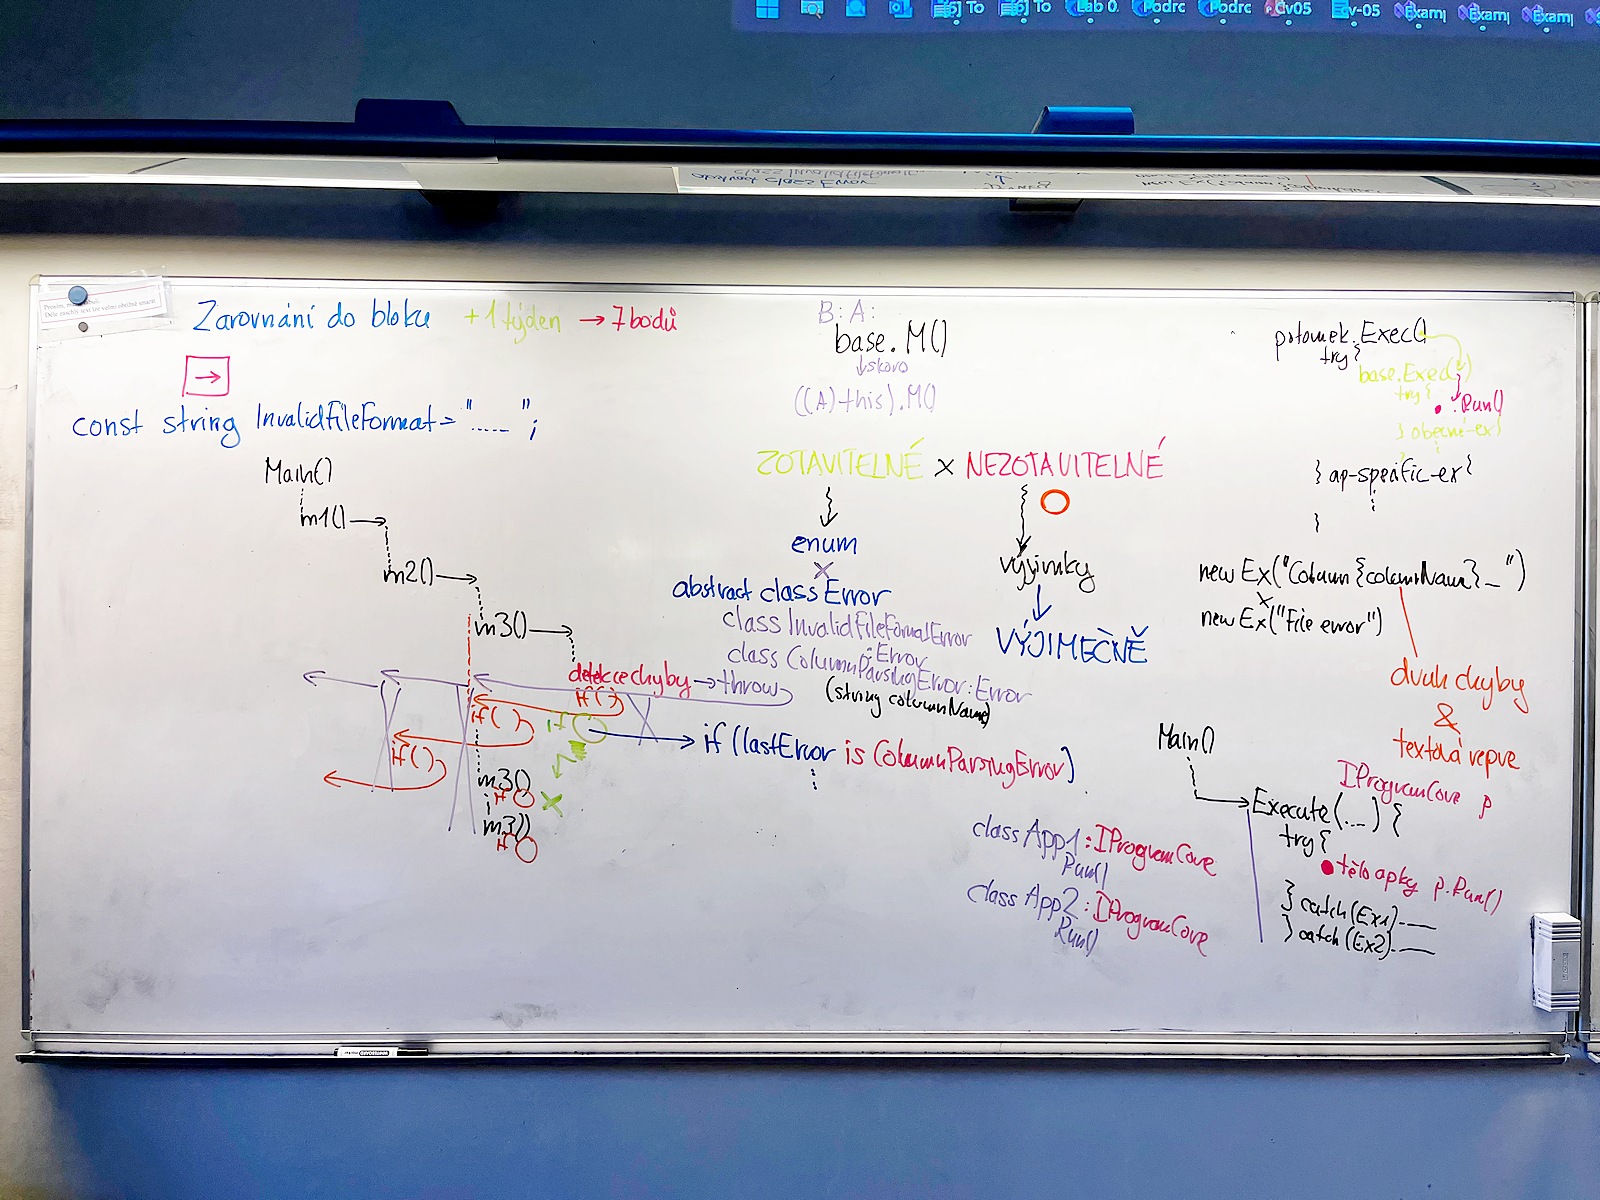 Zarovnání do bloku +1 týden → 7 bodů
→
const string InvalidFileFormat = "....." ;
Main()
m1() →
m2() →
m3() →
detekce chyby → throw
if( )
if( )
if
if( )
m3()
if
m3()
if
B: A:
base.M()
↓ skoro
((A)this).M()
ZOTAVITELNÉ × NEZOTAVITELNÉ
enum
×
abstract class Error
class InvalidFileFormatError
: Error
class ColumnParsingError : Error
(string columnName)
if (lastError is ColumnParsingError)
výjimky
VÝJIMEČNĚ
class App1 : IProgramCore
Run()
class App2 : IProgramCore
Run()
potomek.Exec()
try {
base.Exec()
try {
• .Run()
} obecné-ex}
} ap-specific-ex }
}
new Ex("Column {columnName} _ ")
×
new Ex("File error")
druh chyby
&
textová repre
Main()
IProgramCore p
Execute(...) {
try {
• tělo apky p.Run()
} catch (Ex1)
} catch (Ex2)